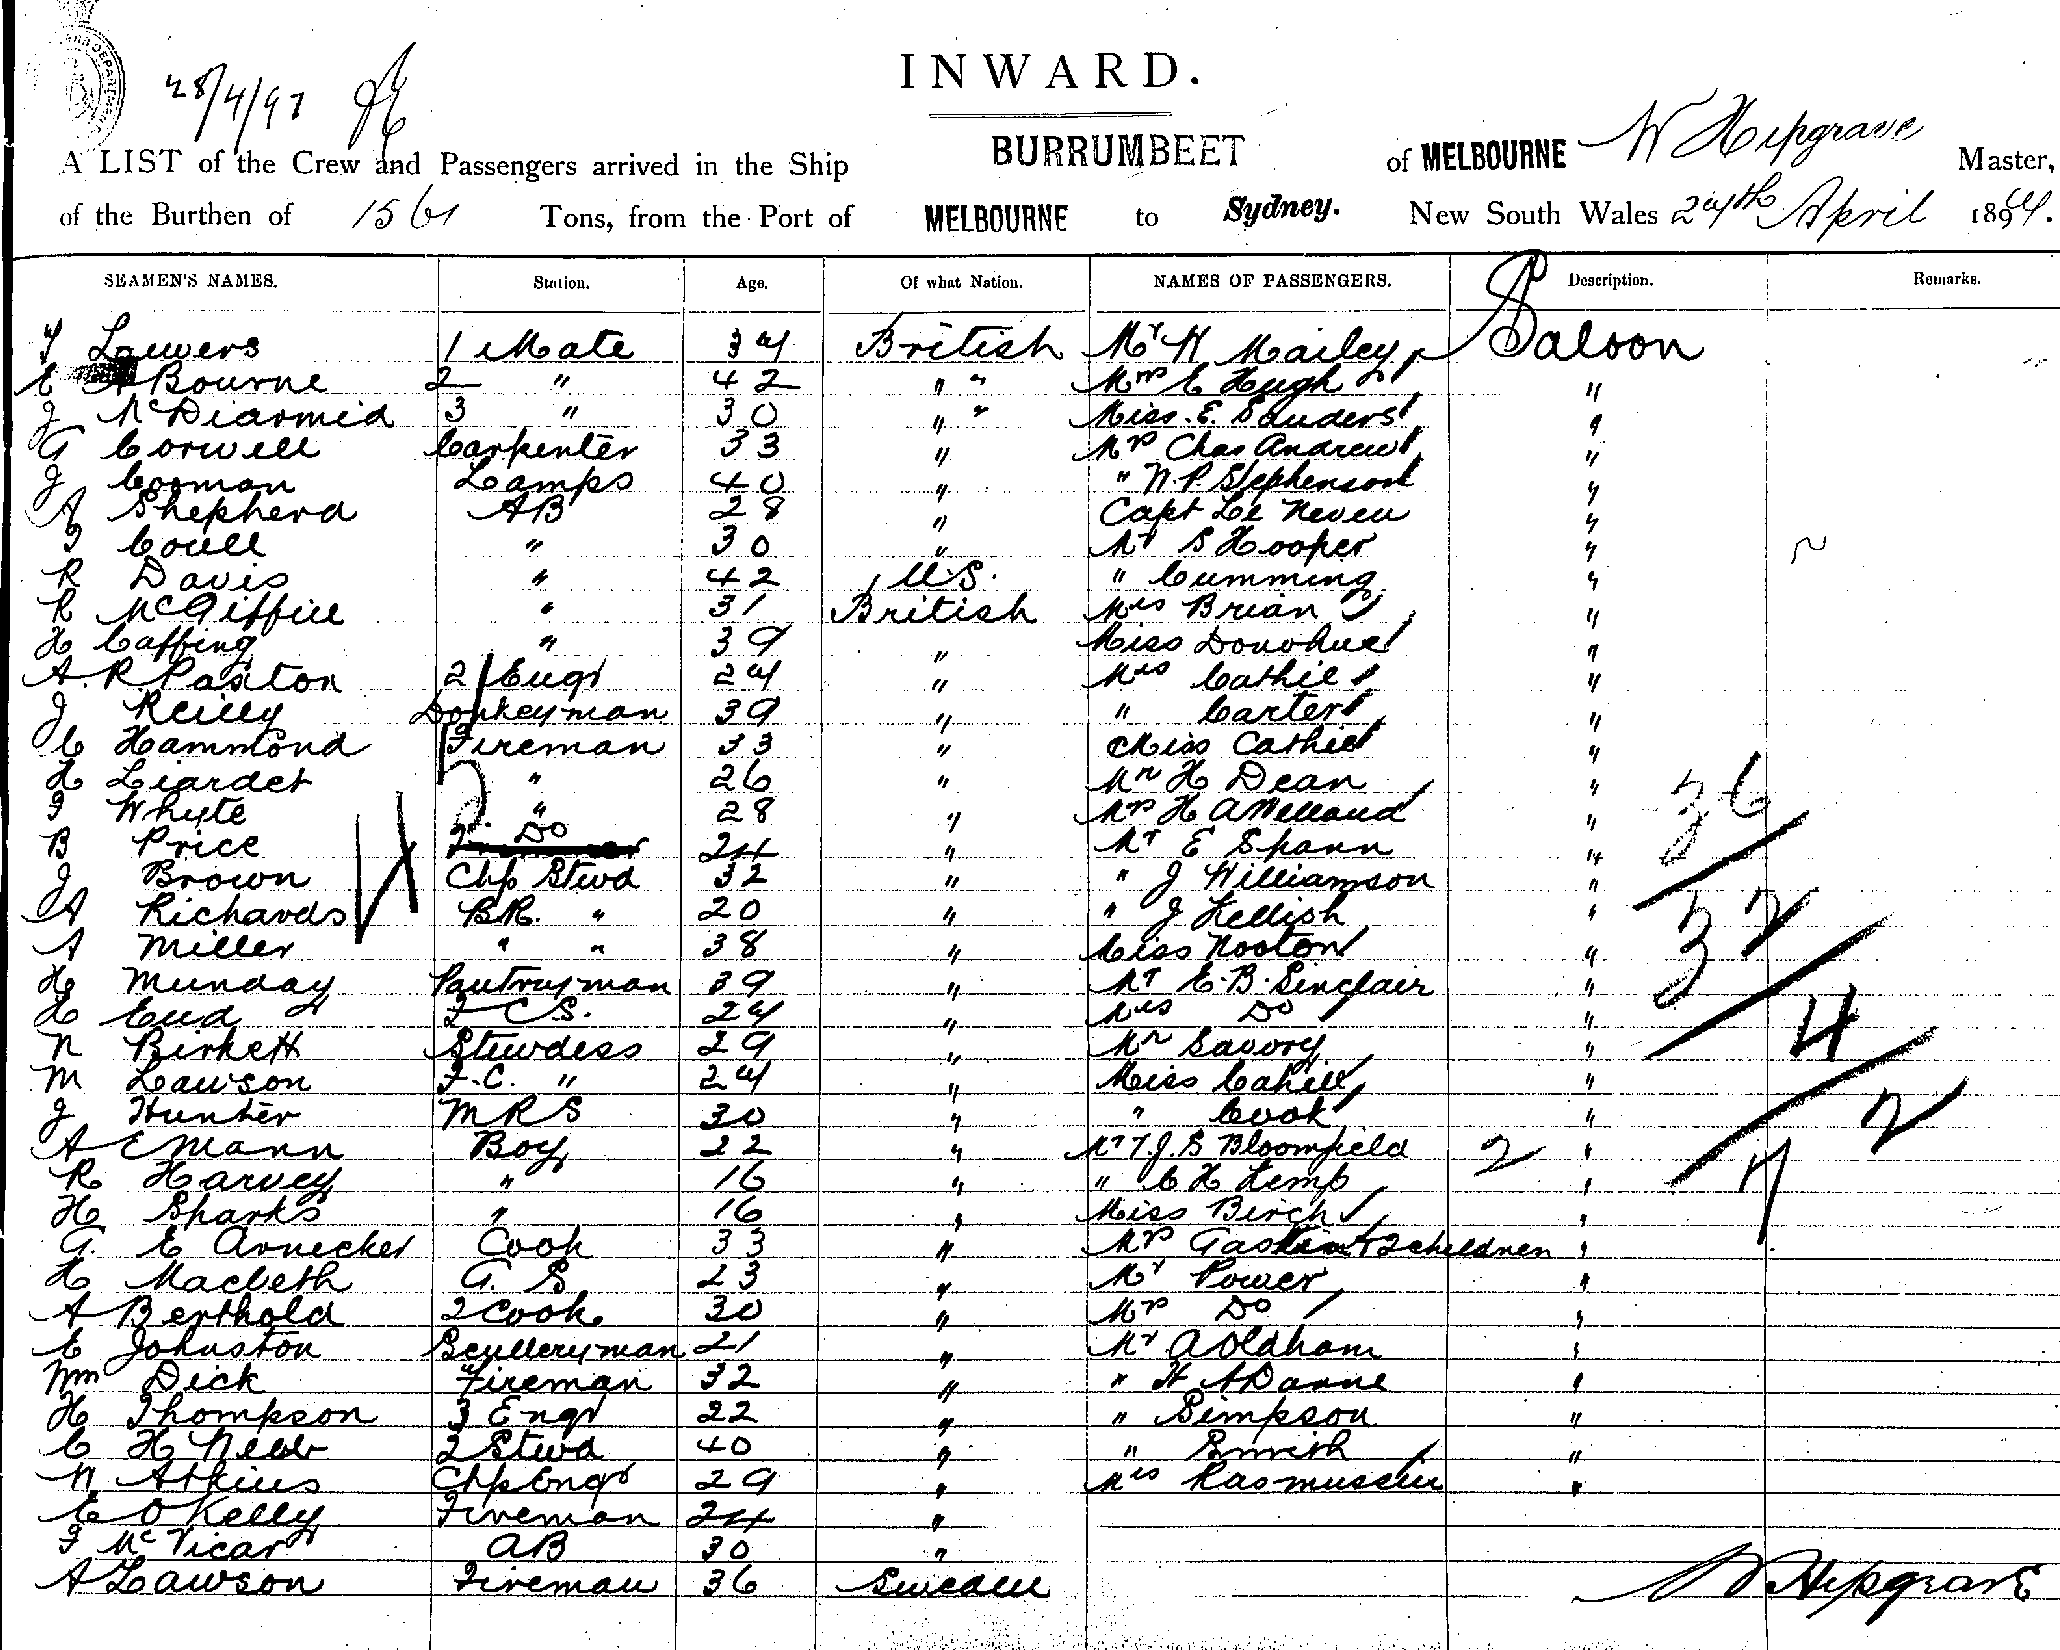 28/4/97
INWARD.
A LIST of the Crew and Passengers arrived in the Ship BURRUMBEET of MELBOURNE W Hipgrave Master,
of the Burthen of 1561 Tons, from the Port of MELBOURNE to Sydney. New South Wales 24th April 1894.
SEAMEN'S NAMES. Station. Age. Of what Nation. NAMES OF PASSENGERS. Description. Remarks.
Lewers 1 Mate 34 British Mr H Mailey Saloon
E Bourne 2 " 42 " " E Hugh "
J McDiarmid 3 " 30 " " Miss E. Sauders "
G Corwell Carpenter 33 " Mrs Chas Andrew "
J Cooman Lamps 40 " " N.P. Stephenson "
A Shepherd AB 28 " Capt Le Neveu "
Coull " 30 " Mr S Hooper "
R Davis " 42 U.S. " Cumming "
R McGiffin " 31 British Mrs Brian "
H Caffing " 39 " Miss Donohue "
A. R Paxton 2 Engr 24 " Mrs Cathie "
J Reilly Donkeyman 39 " " Carter "
C Hammond Fireman 33 " Miss Cathie "
H Liardet " 26 " Mr H Dean "
Whyte " 28 " Mrs H A Welland "
B Price Do 24 " Mr E Spann " 36
J Brown Chf Stwd 32 " " J Williamson "
A Richards B.R. " 20 " " J Kellish "
A Miller " " 38 " Miss Nooton "
H Munday Pantryman 39 " Mr E. B. Sinclair "
2 C S. 24 " Mrs Do " 4
N Birkett Stewdess 29 " Mr Savory "
M Lawson F.C. " 24 " Miss Cahill "
J Hunter M R S 30 " " Cook " 2
A E Mann Boy 22 " Mr T. J. S Bloomfield 2 "
R Harvey " 16 " " C H Kemp "
H Sparks " 16 " Miss Birch "
G. E Arnecker Cook 33 " Mrs + 2 children "
H Macbeth G. S 23 " Mr Power "
A Berthold 2 Cook 30 " Mrs Do "
E Johnston Sculleryman 21 " Mr A Oldham "
Wm Dick Fireman 32 " " H A Danne "
H Thompson 3 Engr 22 " " Simpson "
C H Webb 2 Stwd 40 " " Smith "
N Atkins Chf Engr 29 " Mrs Rasmussen "
E O Kelly Fireman 24 "
McVicar AB 30 "
A Lawson Fireman 36 Sweden
W Hipgrave